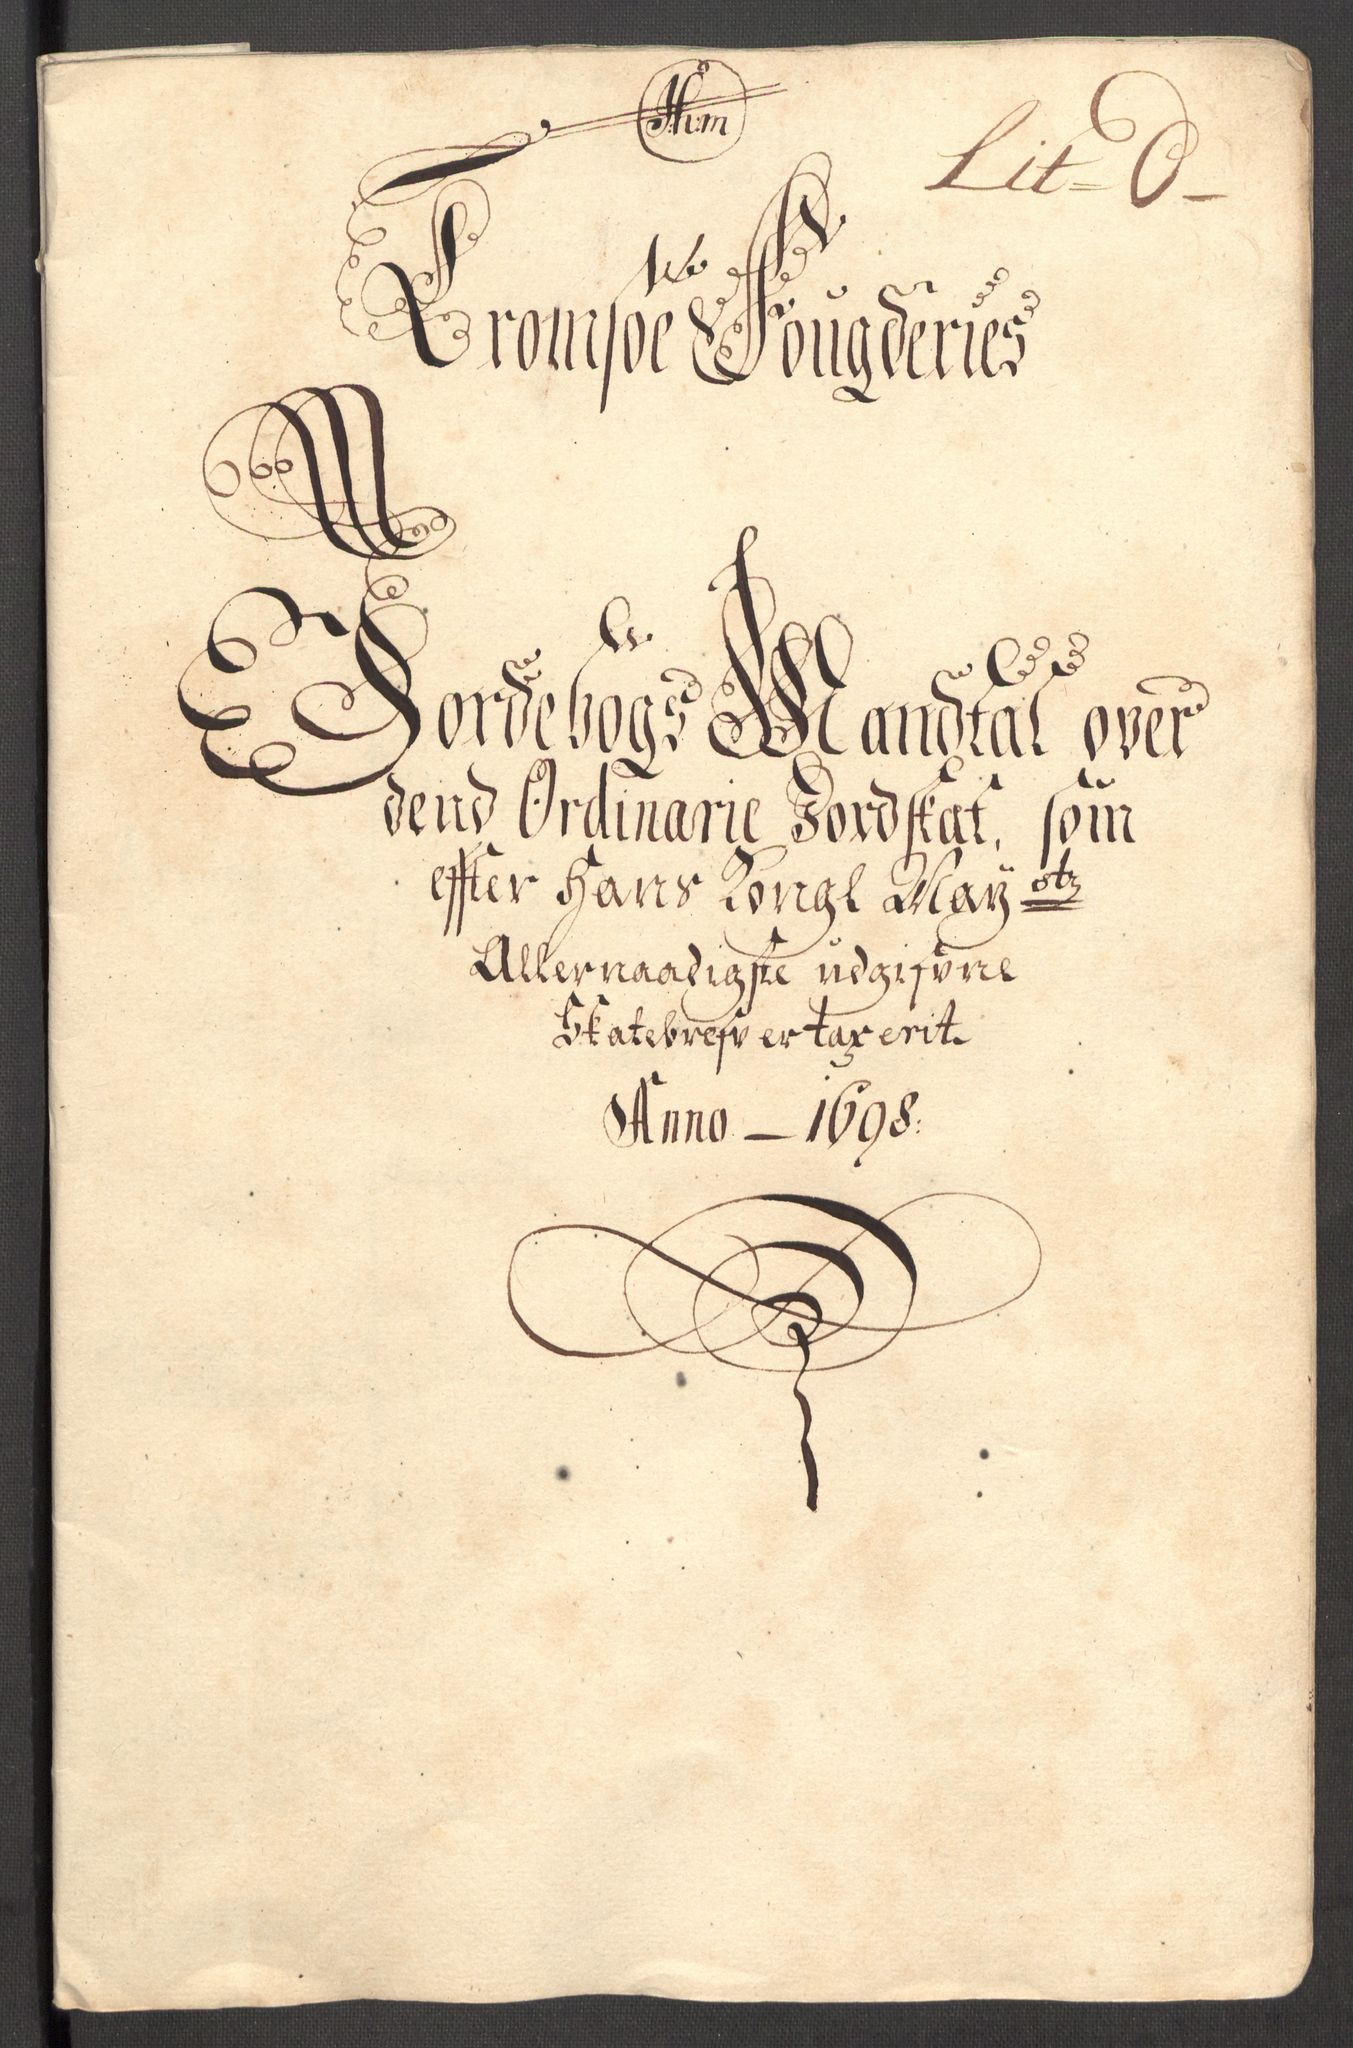 Lit= O-
Tromsøe Fougderies
Jordebogs Mandtal over
dend Ordinarie Jordskat, som
effter Hans Kongl May
Allernaadigste udgifvne
Skatebrefv er taxerit.
Anno - 1698: